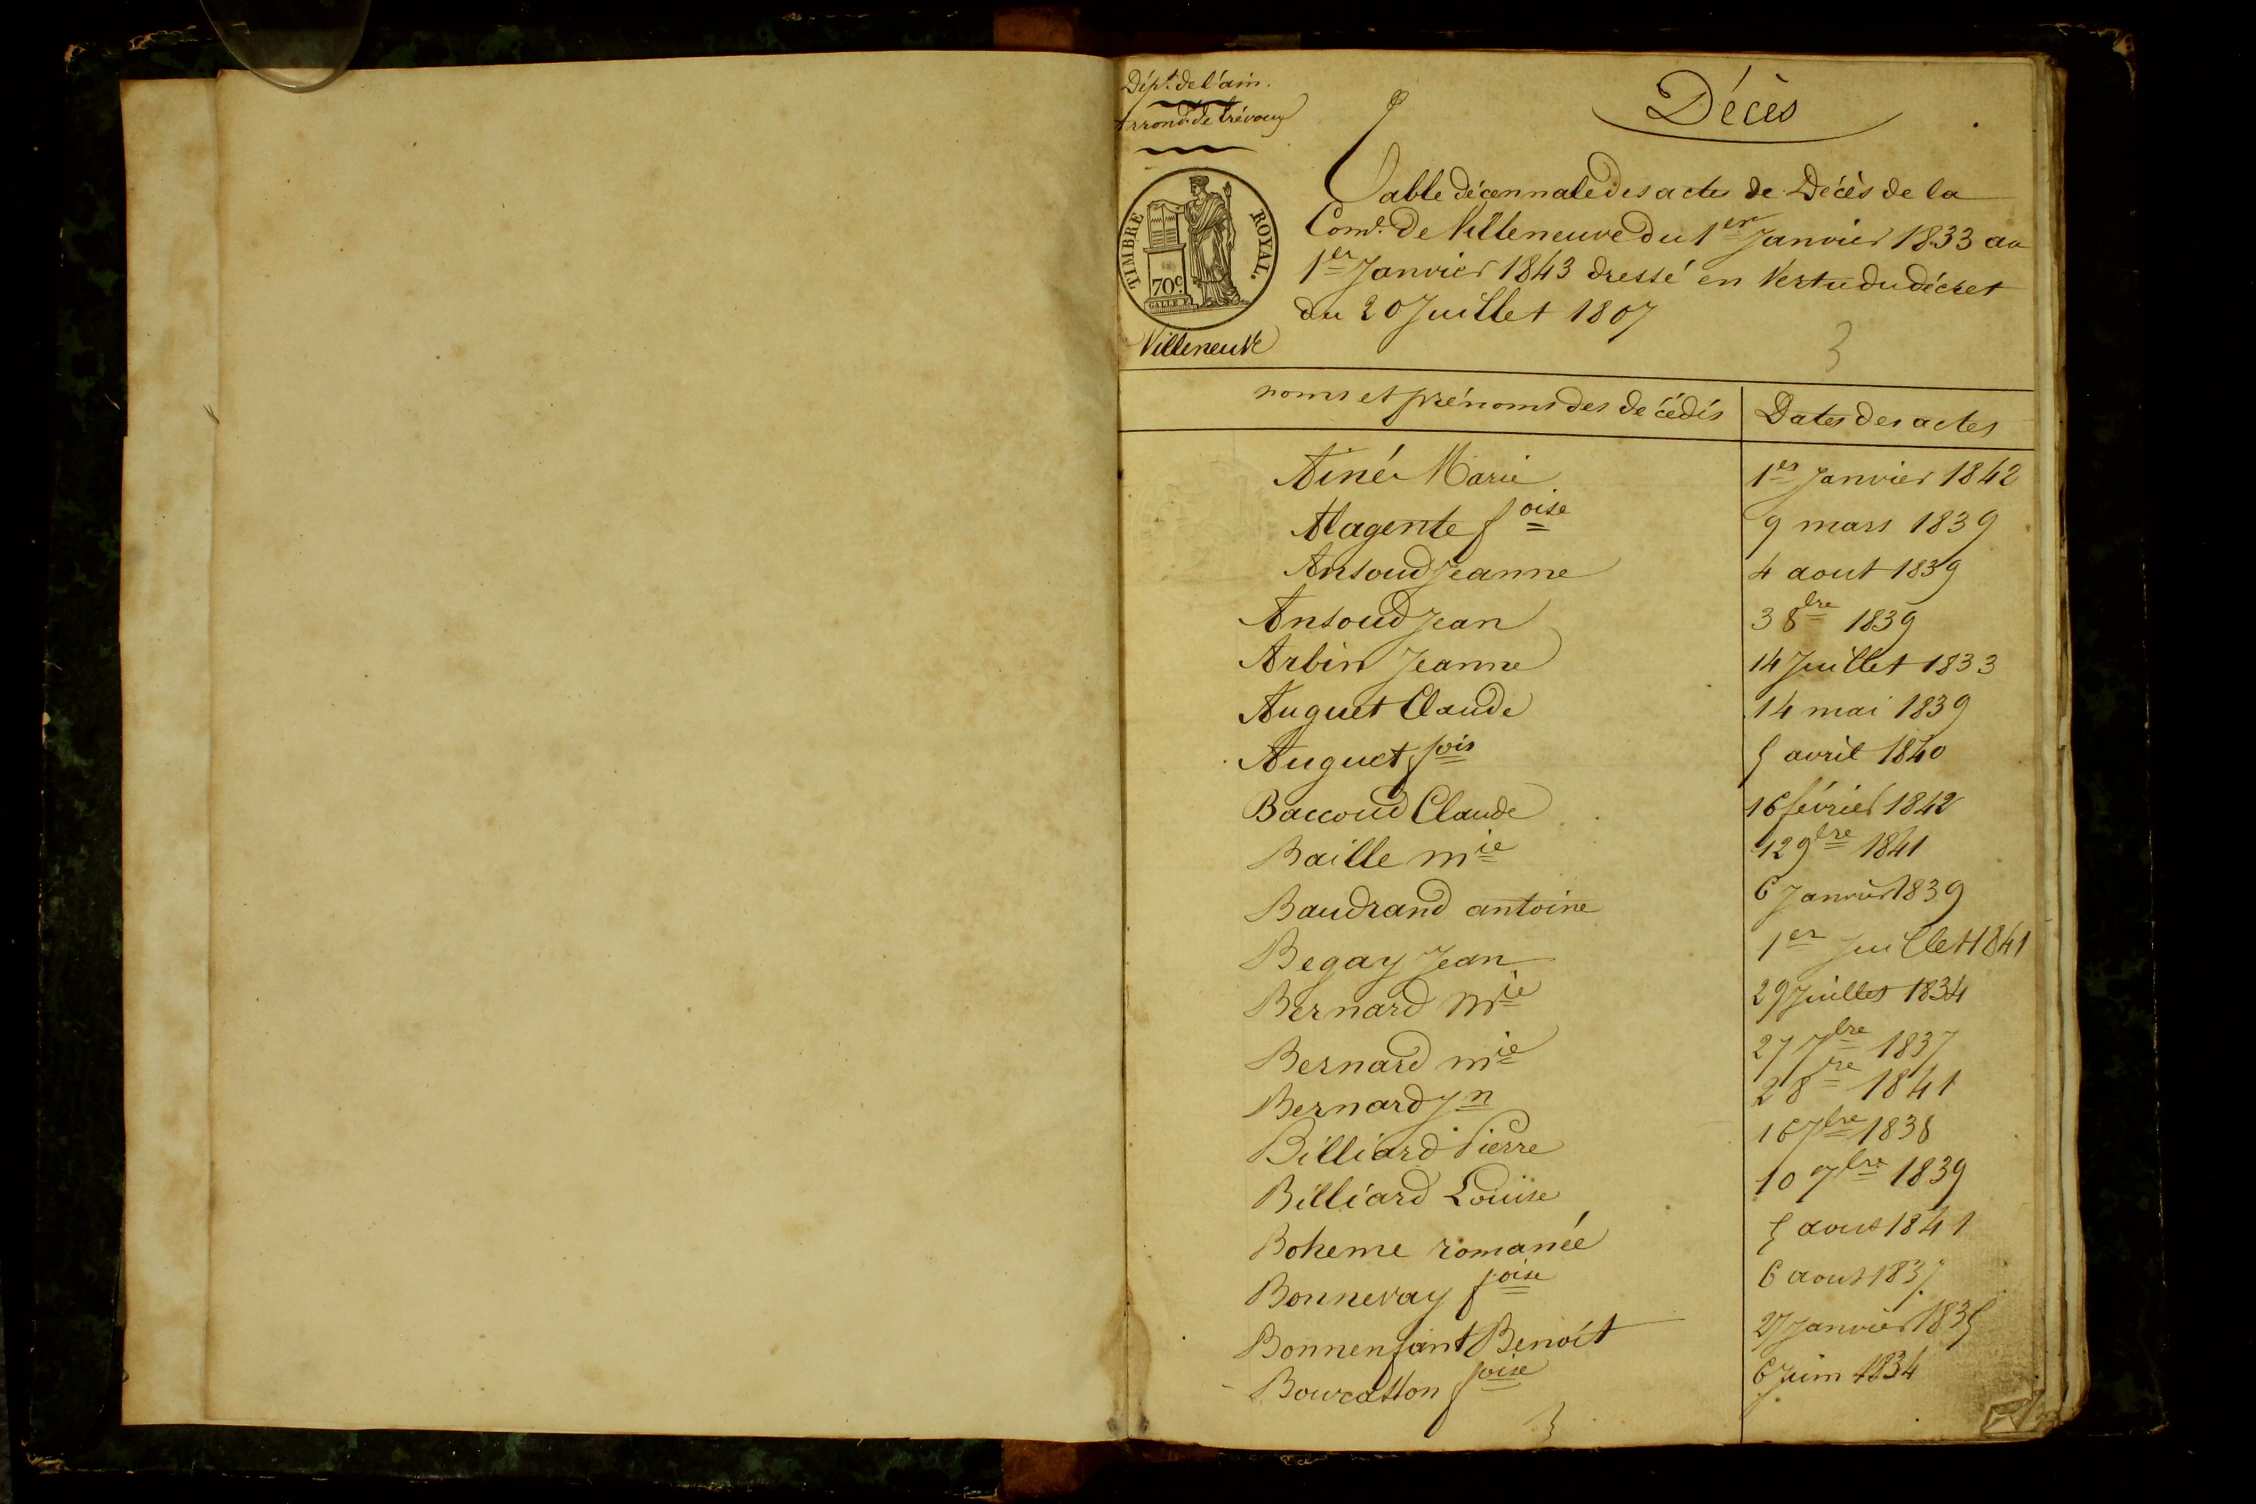 Dépt. de l'ain.
Arrond. de trévoux
TIMBRE ROYAL.
70c.
GALLE F.
Villeneuve
Décès
Table décennale des actes de Décès de la
Come. De Villeneuve du 1er Janvier 1833 au
1er Janvier 1843 dressé en Vertu du décret
du 20 Juillet 1807
3
noms et prénoms des décédés | Dates des actes
Ainé Marie 1er Janvier 1842
Alagente foise 9 mars 1839
Ansoud Jeanne 4 aout 1839
Ansoud Jean 3 8bre 1839
Arbin Jeanne 14 Juillet 1833
Auguet Claude 14 mai 1839
Auguet fois 5 avril 1840
Baccoud Claude 16 février 1842
Baille mie 12 9bre 1841
Baudrand antoine 6 Janvier 1839
Begay Jean 1er Juillet 1841
Bernard Mie 29 Juillet 1834
Bernard mie 27 7bre 1837
Bernard Jn 2 8re 1841
Billiard Pierre 16 7bre 1838
Billiard Louise 10 7bre 1839
Boheme romanée 5 aout 1841
Bonnevay foise 6 aout 1837
Bonnenfant Benoit 27 Janvier 1835
Bourcatton foise 6 Juin 1834